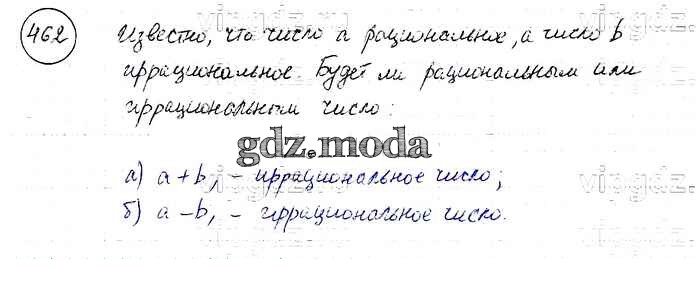 462 Известно, что число а рациональное, а число b
иррациональное. Будет ли рациональным или
иррациональным число:
gdz.moda
а) a+b, - иррациональное число;
б) a-b, - иррациональное число.